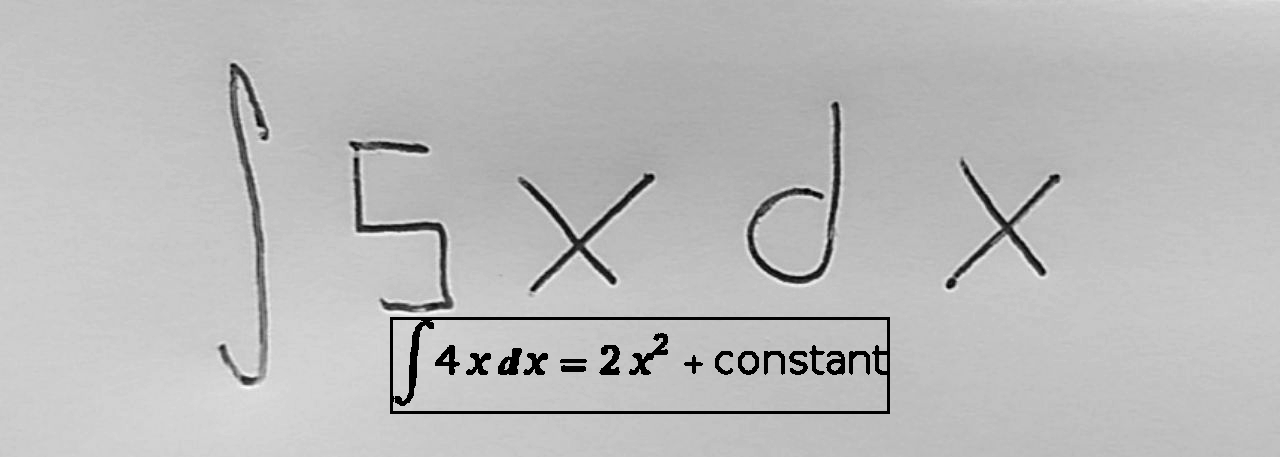 ∫ 5 x d x
∫ 4 x dx = 2 x² + constant